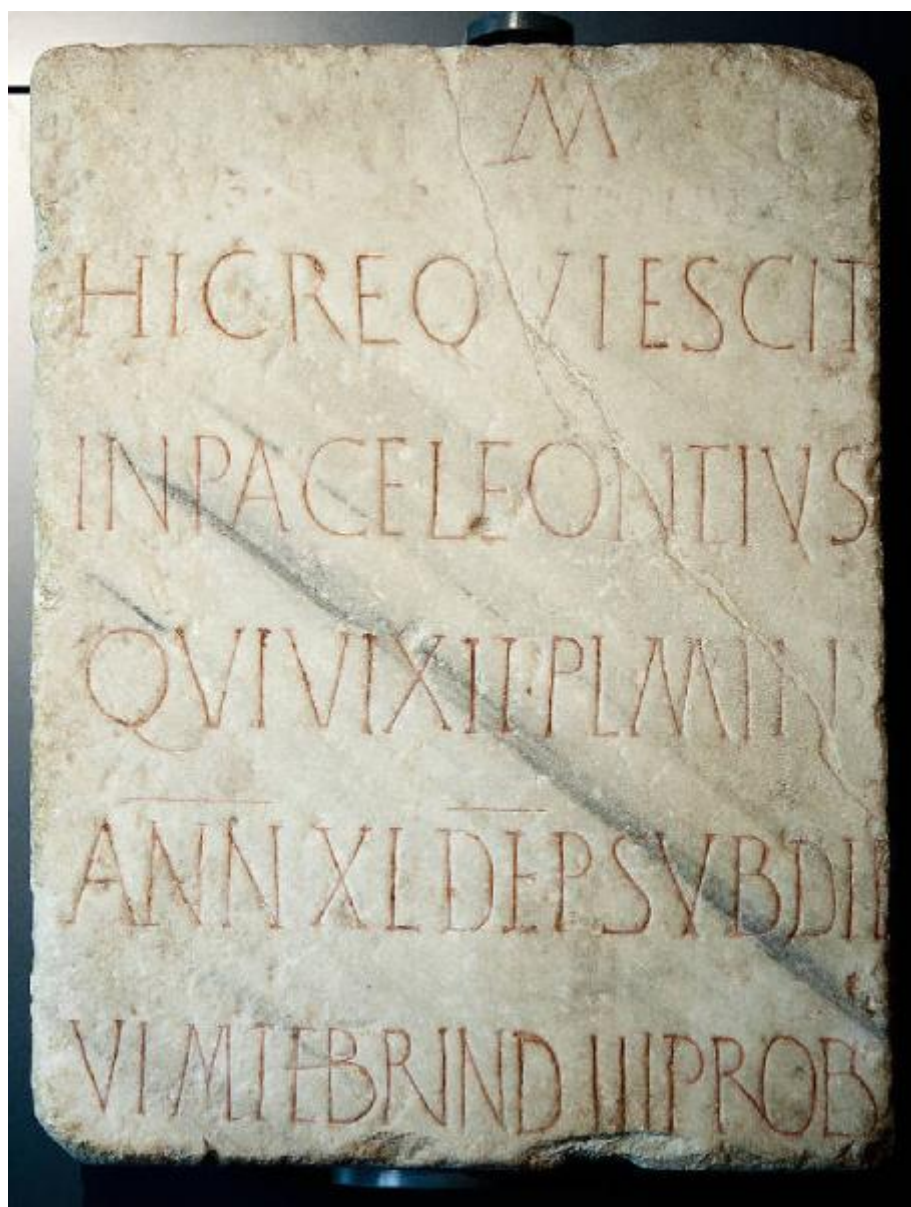 M
HICREQVIESCIT
INPACELEONTIVS
QVIVIXIT·PLMIN
ANNXLDEPSVBDIE
VIMFEBRINDIIIPROB